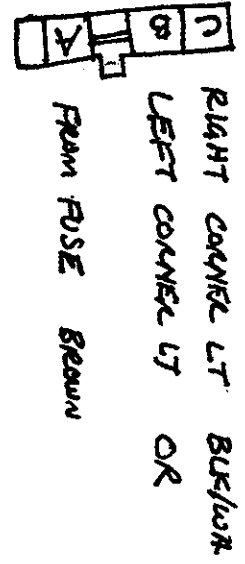 C RIGHT CORNER LT BLK/WH
B LEFT CORNER LT OR
A FROM FUSE BROWN